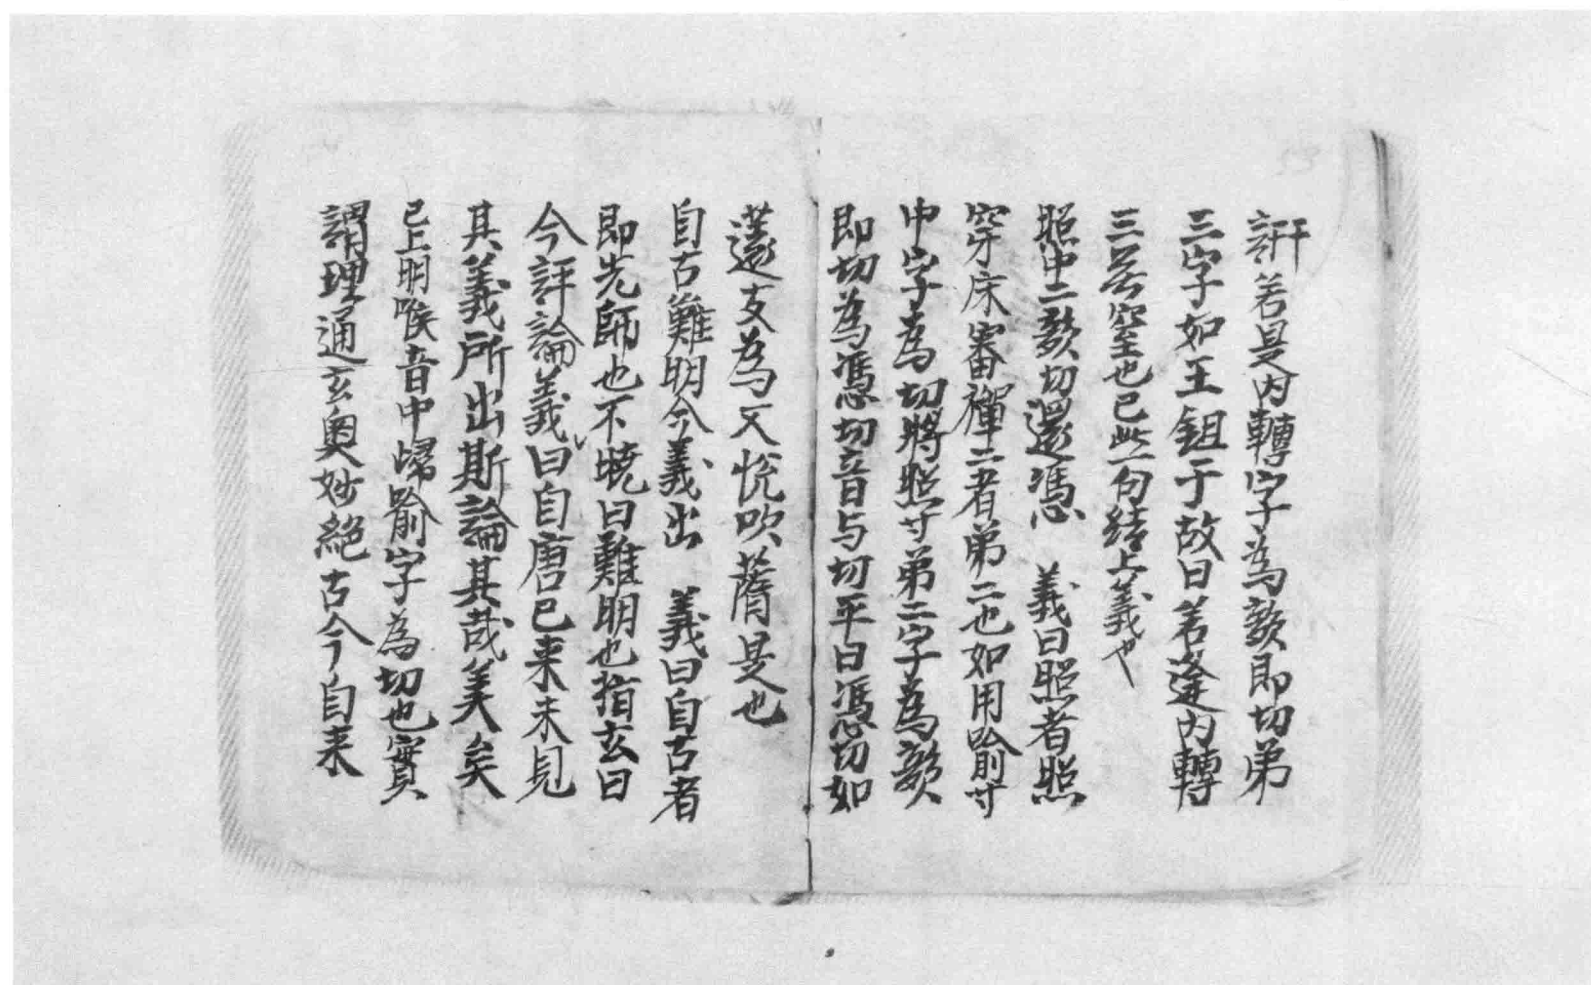 訐若是内轉字為韻即切弟
三字如王鉏于故曰若逢内轉
三無窒也已此一句結上義也
照中二韻切還憑 義曰照者照
穿床審禪二者弟二也如用喻寸
中字為切將照寸弟二字為韻
即切為憑切音与切平曰憑切如
薳支為又悅吹䔺是也
自古難明今義出 義曰自古者
即先師也不曉曰難明也指玄曰
今評論義曰自唐已来未見
其義所出斯論其哉美矣
已上明喉音中歸喻字為切也實
謂理通玄奥妙絶古今自来